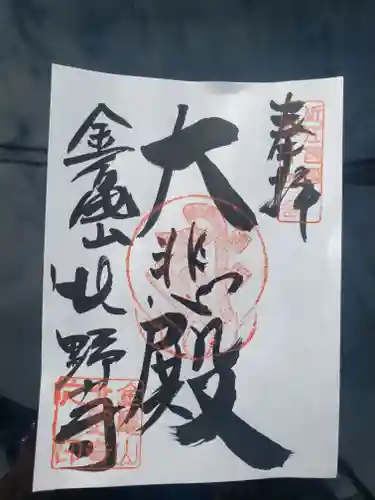 奉拝
大悲殿
金亀山
北野寺